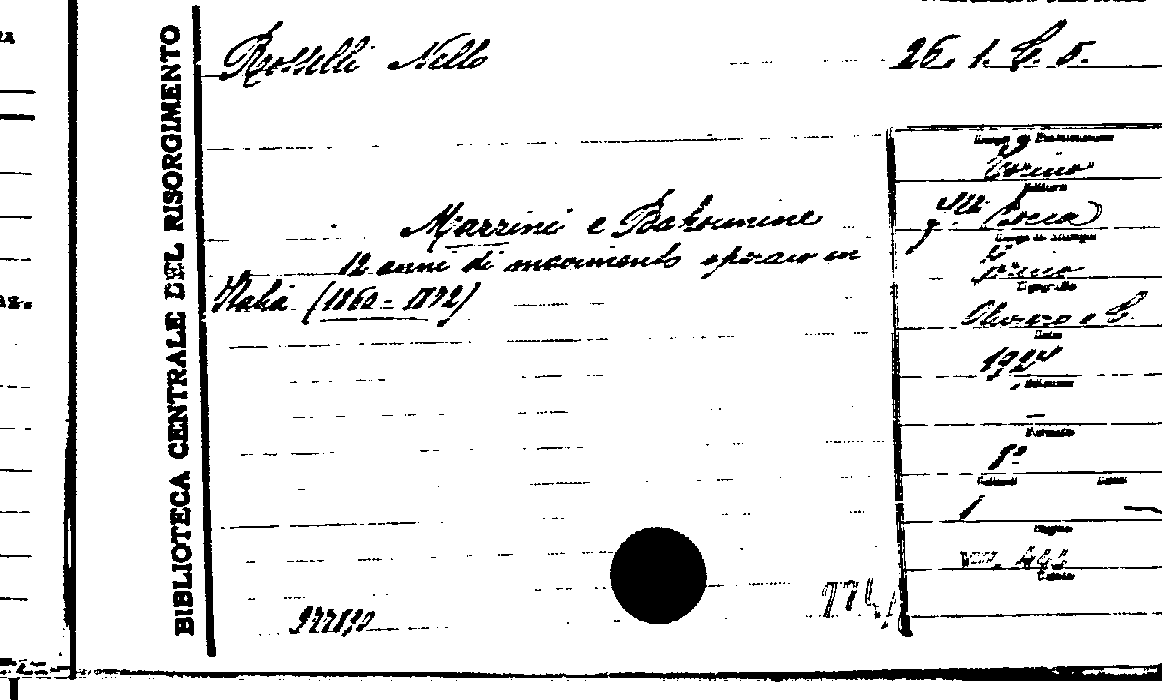 BIBLIOTECA CENTRALE DEL RISORGIMENTO
Rosselli Nello
26. 1. C. 5.
Mazzini e Bakounine
12 anni di movimento operaio in
Italia (1860-1872)
Luogo di Pubblicazione
Torino
Editore
F.lli Bocca
Luogo di Stampa
Torino
Tipografo
Data
1927
Volume
—
Formato
8º
1
—
Pagine